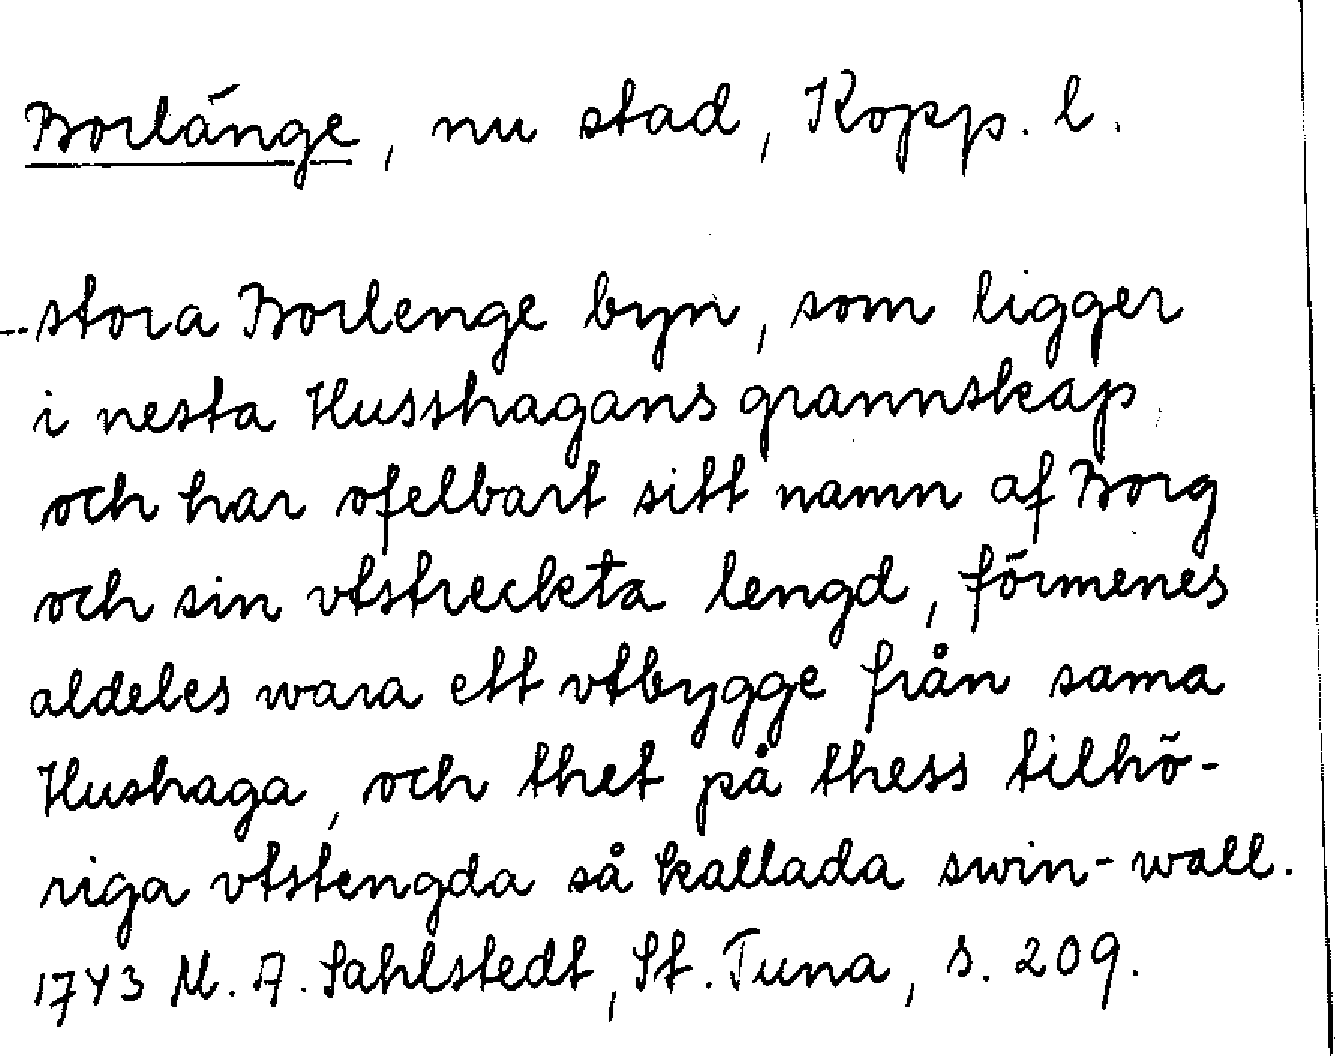 Borlänge, nu stad, Kopp. l.
--stora Borlenge byn, som ligger
i nesta Husshagans grannskap
och har ofelbart sitt namn af Borg
och sin vtstreckta lengd, förmenes
aldeles wara ett vtbygge från sama
Hushaga, och thet på thess tilhö-
riga vtstengda så kallada swin-wall.
1743 M. A. Sahlstedt, St. Tuna, s. 209.